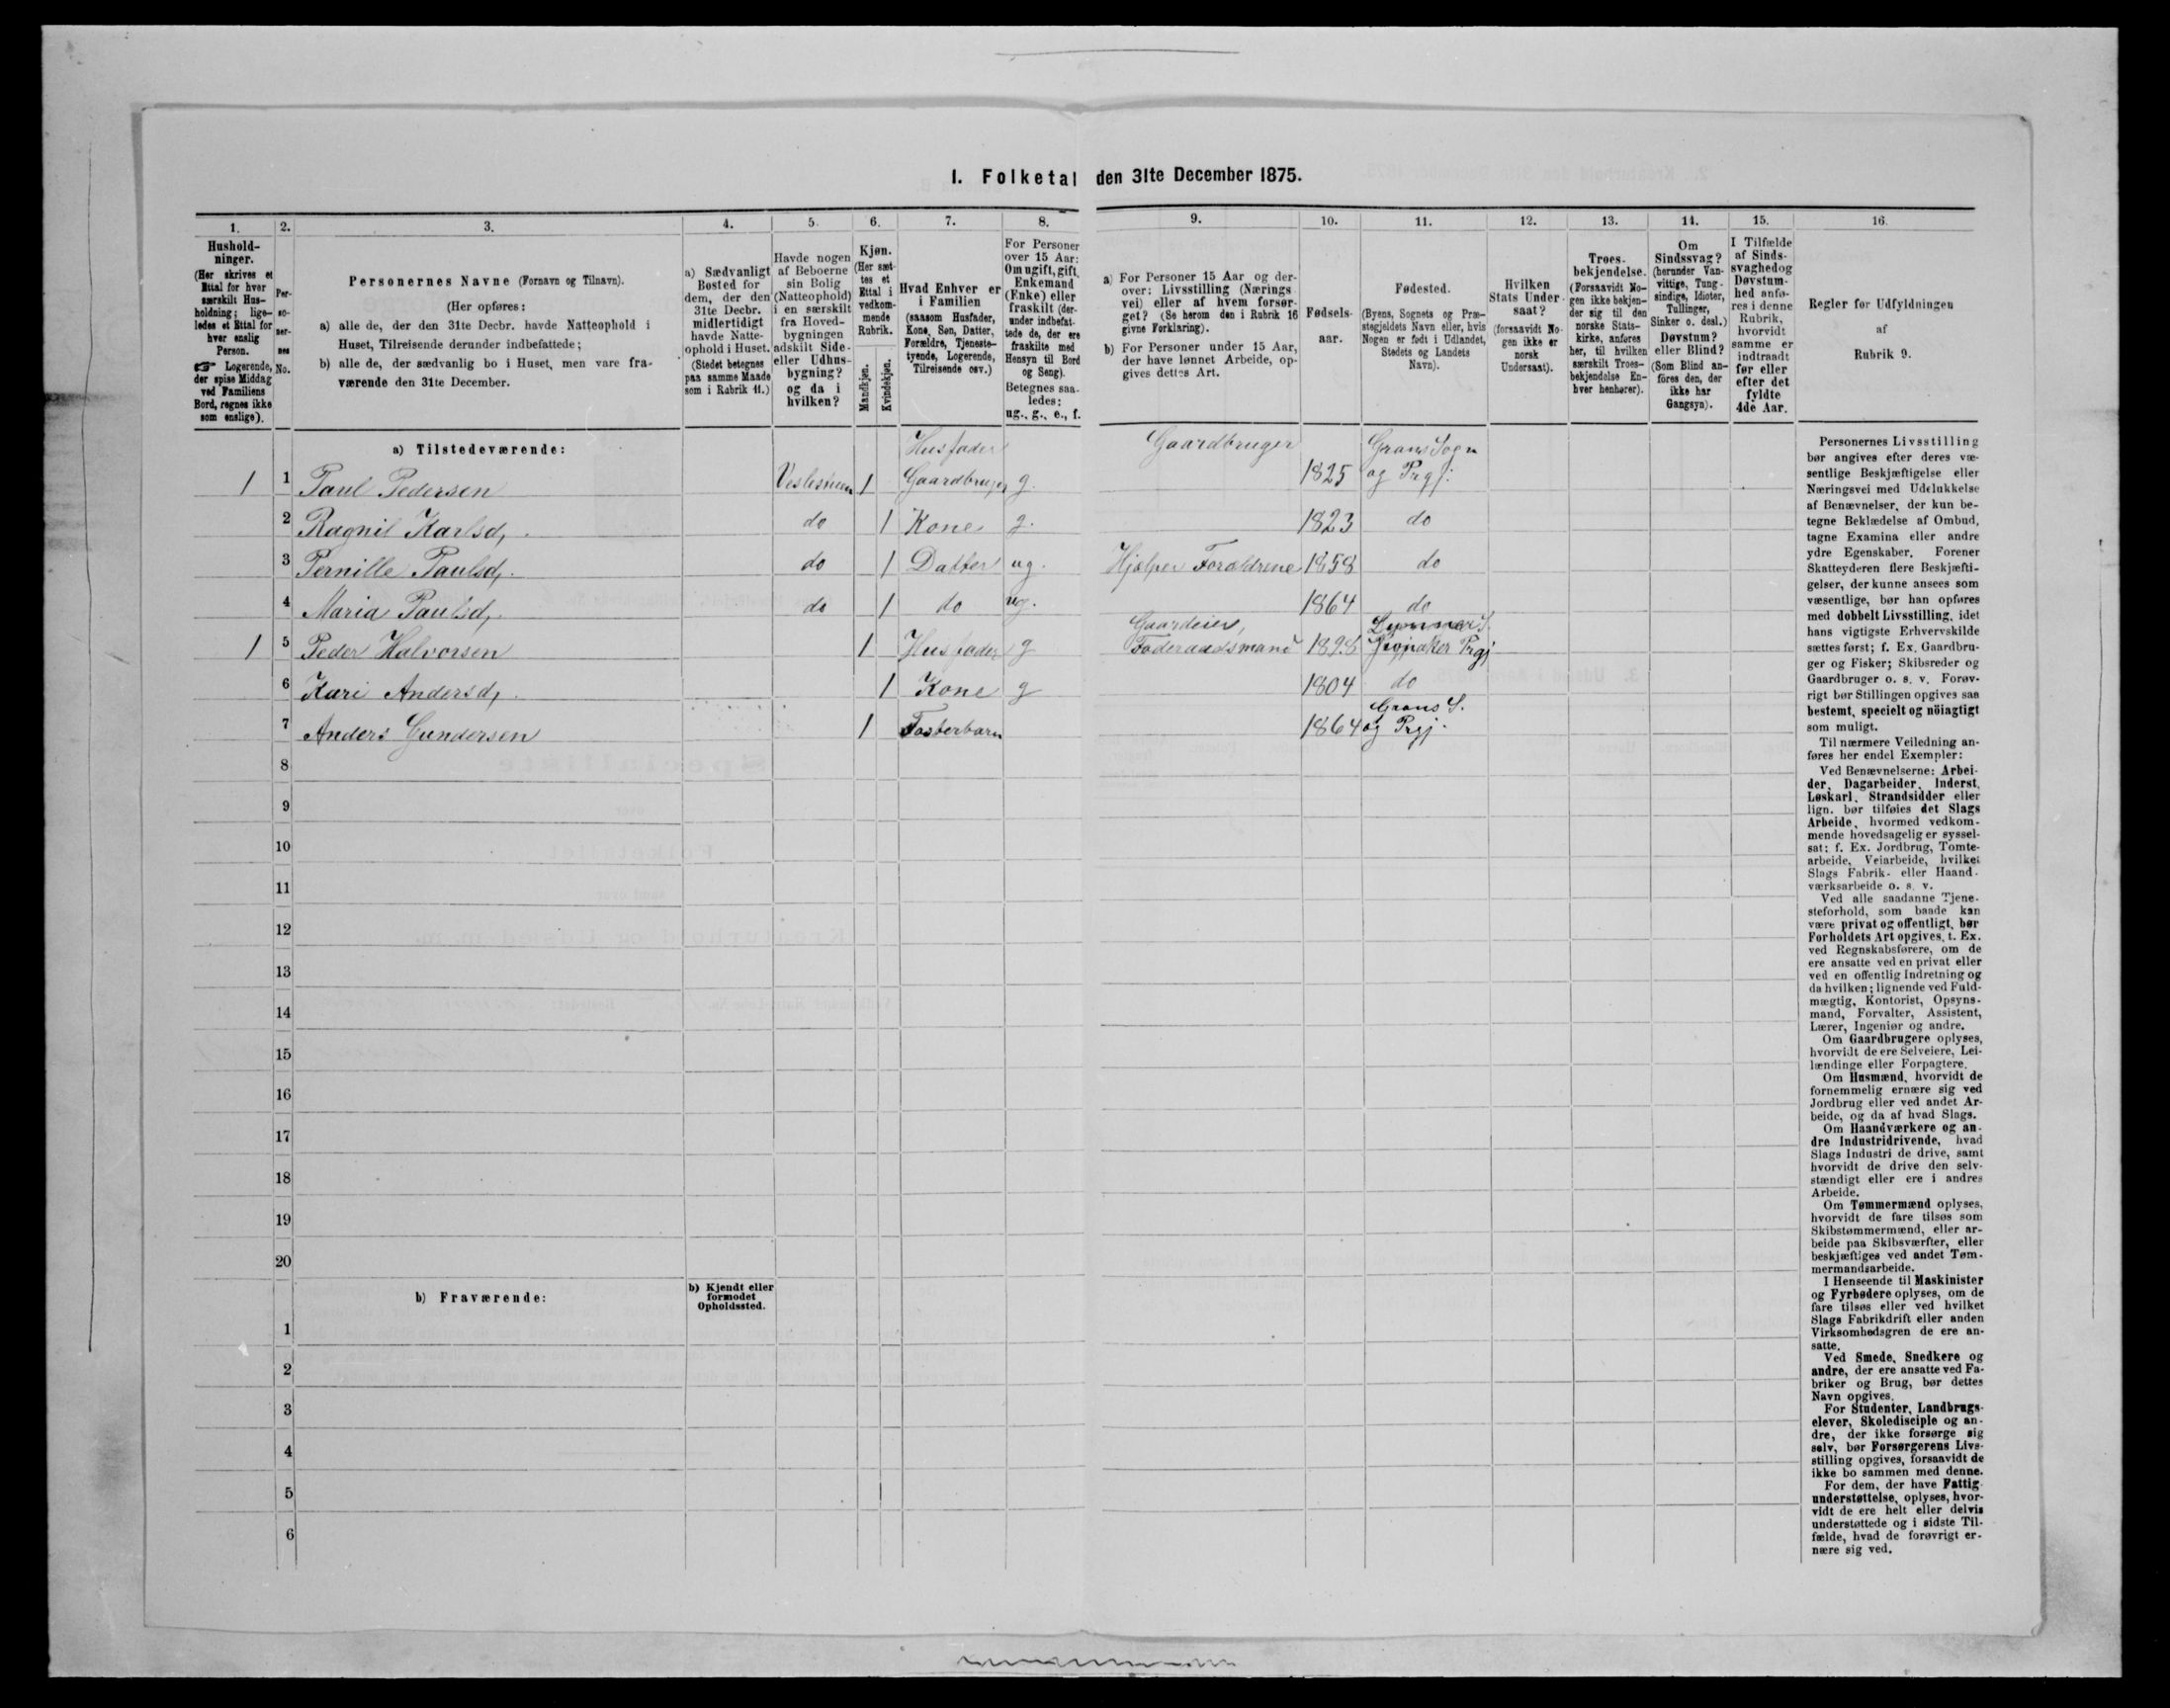 I. Folketal den 31te December 1875.
1. 2. 3. 4. 5. 6. 7. 8. 9. 10. 11. 12. 13. 14. 15. 16.
Hushold-
ninger.
(Her skrives et
Ettal for hver
særskilt Hus-
holdning; lige-
ledes et Ettal for
hver enslig
Person.
☞ Logerende,
der spise Middag
ved Familiens
Bord, regnes ikke
som enslige).
Per-
so-
ner-
nes
No.
Personernes Navne (Fornavn og Tilnavn).
(Her opføres:
a) alle de, der den 31te Decbr. havde Natteophold i
Huset, Tilreisende derunder indbefattede;
b) alle de, der sædvanlig bo i Huset, men vare fra-
værende den 31te December.
a) Sædvanligt
Bosted for
dem, der den
31te Decbr.
midlertidigt
havde Natte-
ophold i Huset.
(Stedet betegnes
paa samme Maade
som i Rubrik 11.)
Havde nogen
af Beboerne
sin Bolig
(Natteophold)
i en særskilt
fra Hoved-
bygningen
adskilt Side-
eller Udhus-
bygning?
og da i
hvilken?
Kjøn.
(Her sæt-
tes et
Ettal i
vedkom-
mende
Rubrik.
Mandkjøn.
Kvindekjøn.
Hvad Enhver er
i Familien
(saasom Husfader,
Kone, Søn, Datter,
Forældre, Tjeneste-
tyende, Logerende,
Tilreisende osv.)
For Personer
over 15 Aar:
Om ugift, gift,
Enkemand
(Enke) eller
fraskilt (der-
under indbefat-
tede de, der ere
fraskilte med
Hensyn til Bord
og Seng).
Betegnes saa-
ledes:
ug., g., e., f.
a) For Personer 15 Aar og der-
over: Livsstilling (Nærings
vei) eller af hvem forsør-
get? (Se herom den i Rubrik 16
givne Forklaring).
b) For Personer under 15 Aar,
der have lønnet Arbeide, op-
gives dettes Art.
Fødsels-
aar.
Fødested.
(Byens, Sognets og Præ-
stegjeldets Navn eller, hvis
Nogen er født i Udlandet,
Stedets og Landets
Navn).
Hvilken
Stats Under-
saat?
(forsaavidt No-
gen ikke er
norsk
Undersaat).
Troes-
bekjendelse.
(Forsaavidt No-
gen ikke bekjen-
der sig til den
norske Stats-
kirke, anføres
her, til hvilken
særskilt Troes-
bekjendelse En-
hver henhører).
Om
Sindssvag?
(herunder Van-
vittige, Tung-
sindige, Idioter,
Tullinger,
Sinker o. desl.)
Døvstum?
eller Blind?
(Som Blind an-
føres den, der
ikke har
Gangsyn).
I Tilfælde
af Sinds-
svaghed og
Døvstum-
hed anfø-
res i denne
Rubrik,
hvorvidt
samme er
indtraadt
før eller
efter det
fyldte
4de Aar.
Regler for Udfyldningen
af
Rubrik 9.
a) Tilstedeværende:
Husfader Gaardbruger Grans Sogn
1 1 Paul Pedersen 1 Gaardbruger g. 1825 og Prgj:
2 Ragnil Karlsd, do 1 Kone g. 1823 do
3 Pernille Paulsd, do 1 Datter ug. Hjælper Forældrene 1858 do
4 Maria Paulsd, do 1 do ug. 1864 do
Gaardeier, Lunner S.
1 5 Peder Halvorsen 1 Husfader g Føderaadsmand Jevnaker Prgj
6 Kari Andersd, 1 Kone g 1804 do
Grans S.
7 Anders Gundersen 1 Fosterbarn 1864 og Prgj.
8
9
10
11
12
13
14
15
16
17
18
19
20
b) Fraværende:
b) Kjendt eller
formodet
Opholdssted.
1
2
3
4
5
6
Personernes Livsstilling
bør angives efter deres væ-
sentlige Beskjæftigelse eller
Næringsvei med Udelukkelse
af Benævnelser, der kun be-
tegne Beklædelse af Ombud,
tagne Examina eller andre
ydre Egenskaber. Forener
Skatteyderen flere Beskjæfti-
gelser, der kunne ansees som
væsentlige, bør han opføres
med dobbelt Livsstilling, idet
hans vigtigste Erhvervskilde
sættes først; f. Ex. Gaardbru-
ger og Fisker; Skibsreder og
Gaardbruger o. s. v. Forøv-
rigt bør Stillingen opgives saa
bestemt, specielt og nöiagtigt
som muligt.
Til nærmere Veiledning an-
føres her endel Exempler:
Ved Benævnelserne: Arbei-
der, Dagarbeider, Inderst,
Løskarl, Strandsidder eller
lign. bør tilføies det Slags
Arbeide, hvormed vedkom-
mende hovedsagelig er syssel-
sat; f. Ex. Jordbrug, Tomte-
arbeide, Veiarbeide, hvilket
Slags Fabrik- eller Haand-
værksarbeide o. s. v.
Ved alle saadanne Tjene-
steforhold, som baade kan
være privat og offentligt, bør
Forholdets Art opgives, t. Ex.
ved Regnskabsførere, om de
ere ansatte ved en privat eller
ved en offentlig Indretning og
da hvilken; lignende ved Fuld-
mægtig, Kontorist, Opsyns-
mand, Forvalter, Assistent,
Lærer, Ingeniør og andre.
Om Gaardbrugere oplyses,
hvorvidt de ere Selveiere, Lei-
lændinge eller Forpagtere.
Om Husmænd, hvorvidt de
fornemmelig ernære sig ved
Jordbrug eller ved andet Ar-
beide, og da af hvad Slags.
Om Haandværkere og an-
dre Industridrivende, hvad
Slags Industri de drive, samt
hvorvidt de drive den selv-
stændigt eller ere i andres
Arbeide.
Om Tømmermænd oplyses,
hvorvidt de fare tilsøs som
Skibstømmermænd, eller ar-
beide paa Skibsværfter, eller
beskjæftiges ved andet Tøm-
mermandsarbeide.
I Henseende til Maskinister
og Fyrbødere oplyses, om de
fare tilsøs eller ved hvilket
Slags Fabrikdrift eller anden
Virksomhedsgren de ere an-
satte.
Ved Smede, Snedkere og
andre, der ere ansatte ved Fa-
briker og Brug, bør dettes
Navn opgives.
For Studenter, Landbrugs-
elever, Skoledisciple og an-
dre, der ikke forsørge sig
selv, bør Forsørgerens Livs-
stilling opgives, forsaavidt de
ikke bo sammen med denne.
For dem, der have Fattig-
understøttelse, oplyses, hvor-
vidt de ere helt eller delvis
understøttede og i sidste Til-
fælde, hvad de forøvrigt er-
nære sig ved.